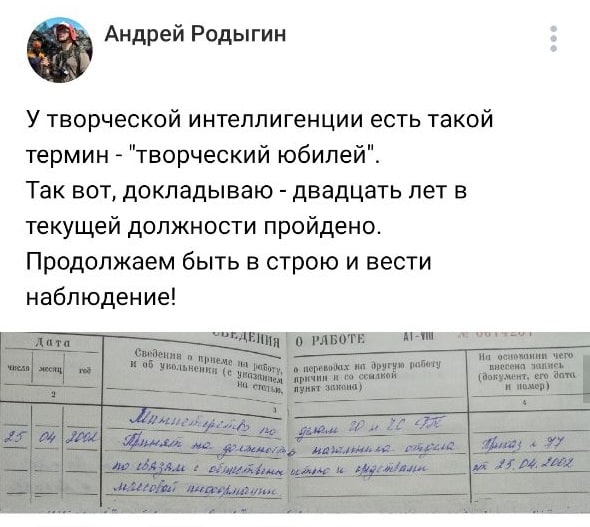 Андрей Родыгин
У творческой интеллигенции есть такой
термин - "творческий юбилей".
Так вот, докладываю - двадцать лет в
текущей должности пройдено.
Продолжаем быть в строю и вести
наблюдение!
СВЕДЕНИЯ О РАБОТЕ АТ-VIII №
Дата
число месяц год
Сведения о приеме на работу, о переводах на другую работу
и об увольнении (с указанием причин и со ссылкой
на статью, пункт закона)
На основании чего
внесена запись
(документ, его дата
и номер)
2 3 4
Министерство по делам ГО и ЧС РТ
25 04 2002 Принят на должность начальника отдела Приказ № 77
по связям с общественностью и средствами от 25.04.2002
массовой информации